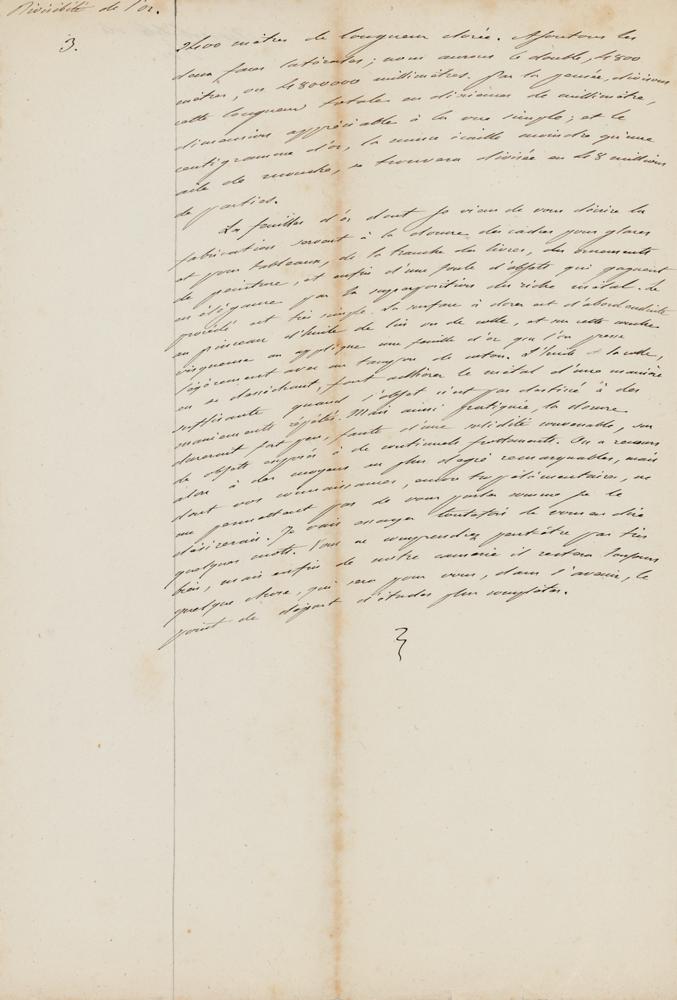 Divisibilité de l'or.
3.
2400 mètres de longueur dorée. Ajoutons les
deux faces latérales; nous aurons le double, 4800
mètres, ou 4800000 millimètres. Par la pensée, divisons
cette longueur totale en dixièmes de millimètre,
dimension appréciable à la vue simple; et le
centigramme d'or, la mince écaille moindre qu'une
aile de mouche, se trouvera divisée en 48 millions
de parties.
La feuilles d'or dont je viens de vous décrire la
fabrication servent à la dorure des cadres pour glaces
et pour tableaux, de la tranche des livres, des ornements
de peinture, et enfin d'une foule d'objets qui gagnent
en élégance par la superposition du riche métal. Le
procédé est très simple. La surface à dorer est d'abord enduite
au pinceau d'huile de lin ou de colle, et sur cette couche
visqueuse on applique une feuille d'or que l'on presse
légèrement avec un tampon de coton. L'huile et la colle,
en se desséchant, font adhérer le métal d'une manière
suffisante quand l'objet n'est pas destiné à des
maniements répétés. Mais ainsi pratiquée, la dorure
durerait fort peu, faute d'une solidité convenable, sur
de objets exposés à de continuels frottements. On a recours
alors à des moyens au plus degré remarquables, mais
dont vos connaissances, encore trop élémentaires, ne
me permettent pas de vous parler comme je le
désirerais. Je vais essayer toutefois de vous en dire
quelques mots. Vous ne comprendrez peut-être pas très
bien, mais enfin de notre causerie il restera toujours
quelque chose, qui sera pour vous, dans l'avenir, le
point de départ d'études plus complètes.